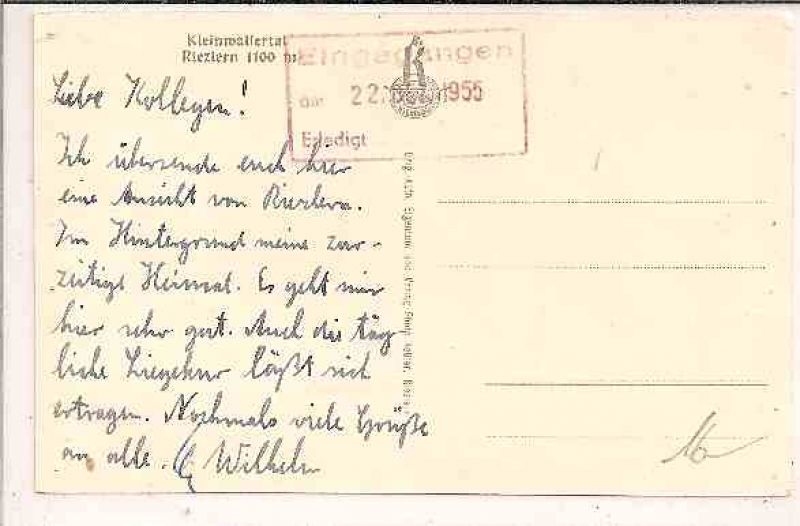 Kleinwalsertal
Riezlern 1100 m
Eingegangen
am 22. 1955
Erledigt
Liebe Kollegen!
Ich übersende euch hier
eine Ansicht von Riezlern.
Im Hintergrund meine zur-
zeitige Heimat. Es geht mir
hier sehr gut. Auch die täg
liche Liegekur läßt sich
ertragen. Nochmals viele Grüße
an alle. Wilhelm